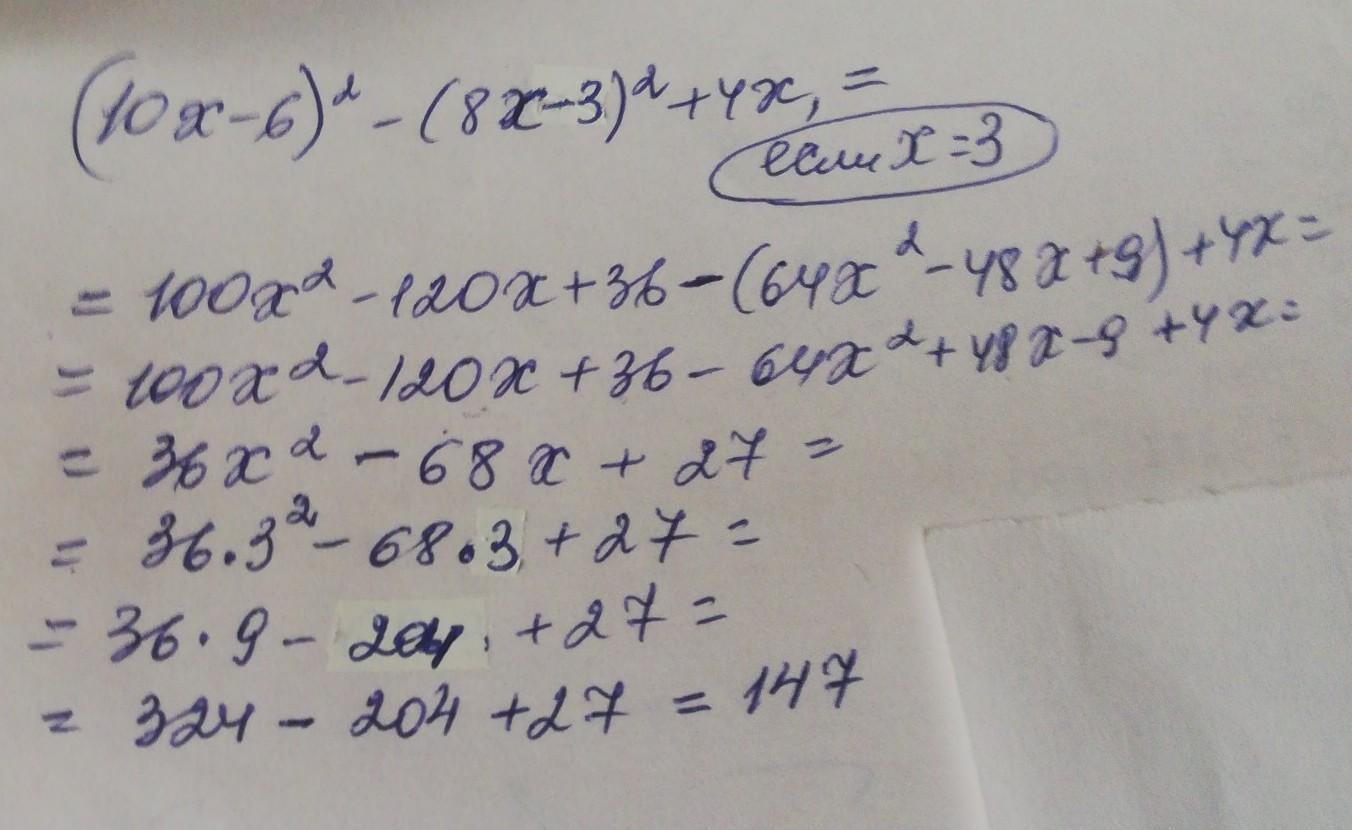 (10x-6)² - (8x-3)² + 4x, =
если x = 3
= 100x² - 120x + 36 - (64x² - 48x + 9) + 4x =
= 100x² - 120x + 36 - 64x² + 48x - 9 + 4x =
= 36x² - 68x + 27 =
= 36 · 3² - 68 · 3 + 27 =
= 36 · 9 - 204 + 27 =
= 324 - 204 + 27 = 147